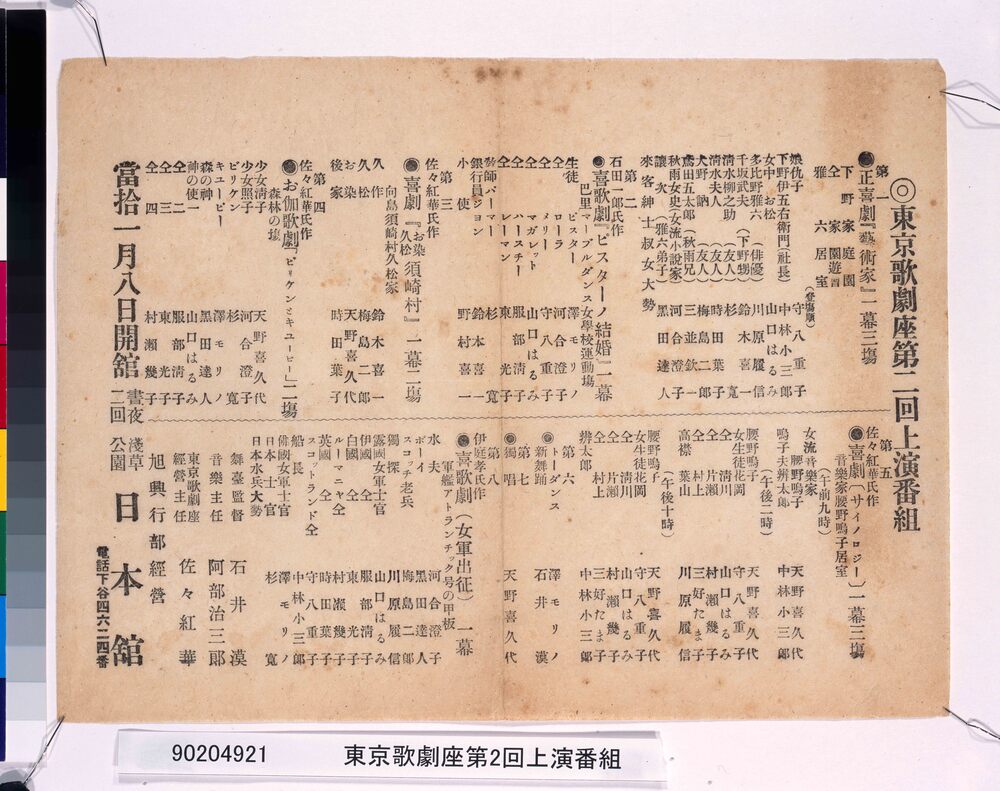 ◎東京歌劇座第二回上演番組
第一
●正喜劇『藝術家』一幕三場
下野家庭園
仝家園遊會
雅六居室
(登場順)
娘仇子 守八重子
下野伊五右衛門(社長) 中林小三郎
女中お松 山口はるみ
多比野雅六(俳優) 川原履信
千坂武夫(下野甥) 鈴木喜一
淸柳之助(友人) 杉寛
淸水夫人(友人) 時田葉子
犬野訥(友人) 梅島二郎
鳶田五太郎(秋雨兄) 三並欽一
秋雨女史(女流小說家) 河合澄子
讓次(雅六弟子) 黑田達人
來客紳士叔女大勢
第二
石田一郎氏作
●喜歌劇『ビスターノ結婚』一幕
巴里マーブルダンス女學校運動場
生徒ビスター 澤モリノ
仝ローラ 河合澄子
仝メリー 守八重子
仝マーガレット 山口はるみ
仝ハースチー 服部淸子
仝レーマン 東光子
敎師バーマー 杉寛
銀行員ジョン 鈴木喜一
小使 野村喜一
第三
佐々紅華氏作
●喜劇『お染久松須崎村』一幕二場
向島須崎村久松家
久作 鈴木喜一
久松 梅島二郎
お染 天野喜久代
後家 時田葉子
第四
佐々紅華氏作
●お伽歌劇『ビリケンとキューピー』二場
森林の場
少女淸子 天野喜久代
少女照子 河合澄子
ビリケン 杉寛
キューピー 澤モリノ
森の神 黑田達人
神の使一 山口はるみ
仝二 服部淸子
仝三 東光子
仝四 村瀬幾子
第五
佐々紅華氏作
●喜劇(サイノロジー)一幕三場
音樂家腰野鳴子居室
(午前九時)
女流音樂家腰野鳴子 天野喜久代
鳴子夫辨太郎 中林小三郎
(午後二時)
腰野鳴子 天野喜久代
女生徒花岡 守八重子
仝淸川 山口はるみ
仝片瀬 村瀬幾子
仝村上 三好たま子
高襟葉山 川原履信
(午後十時)
腰野鳴子 天野喜久代
女生徒花岡 守八重子
仝淸川 山口はるみ
仝片瀬 村瀬幾子
仝村上 三好たま子
辨太郎 中林小三郎
第六
●トーダンス 澤モリノ
新舞踊 石井漠
第七
●獨唱 天野喜久代
第八
伊庭孝氏作
●喜歌劇(女軍出征)一幕
軍艦アトランチック号の甲板
水夫 河合澄子
スコット老兵 黑田達人
ボーイ 梅島二郎
獨探 川原履信
露國女軍士官 山口はるみ
伊國仝 服部淸子
白國仝 東光子
ルーマニヤ仝 村瀬幾子
英國仝 時田葉子
スコットランド仝 守八重子
船長 中林小三郎
佛國女士官 澤モリノ
日本士官 杉寛
日本水兵大勢
舞臺監督 石井漠
音樂主任 阿部治三郎
東京歌劇座經營主任 佐々紅華
旭興行部經營
當拾一月八日開舘 晝夜二回
淺草公園 日本舘
電話下谷四六二四番
90204921 東京歌劇座第2回上演番組